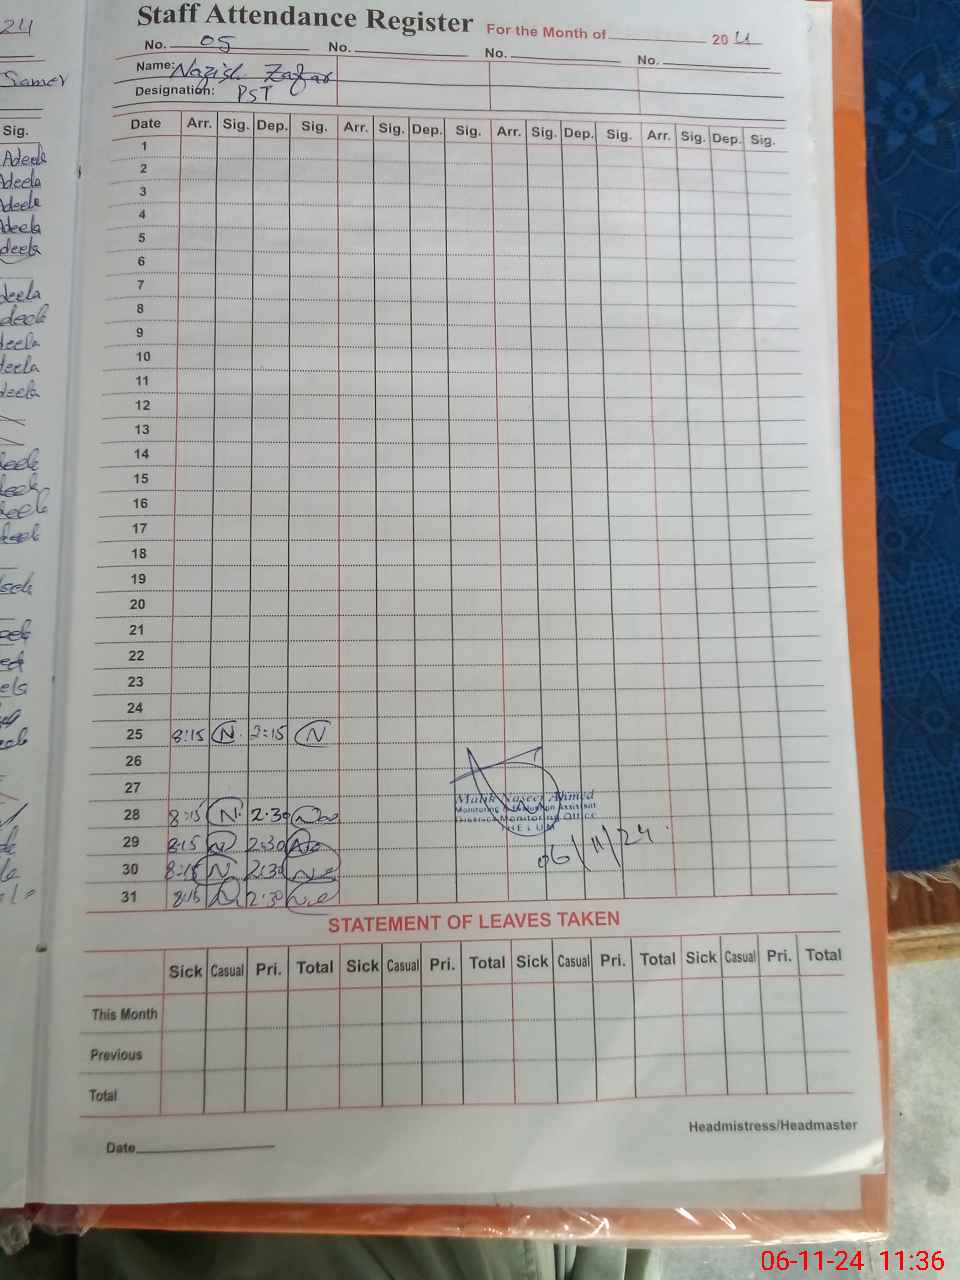 24
Samer
Sig.
Adeela
Adeela
Adeela
Adeela
Adeela
Staff Attendance Register For the Month of 20
No. 05 No. No. No.
Name: Nazish Zafar
Designation: PST
Date Arr. Sig. Dep. Sig. Arr. Sig. Dep. Sig. Arr. Sig. Dep. Sig. Arr. Sig. Dep. Sig.
1
2
3
4
5
6
7
8
9
10
11
12
13
14
15
16
17
18
19
20
21
22
23
24
25 8:15 N 2:15 N
26
27
28 8:15 N 2:30
29 8:15 N 2:30
30 8:15 N 2:30
31 8:15 N 2:30
Malik Naseer Ahmed
Monitoring & Evaluation Assistant
District Monitoring Office
JHELUM
06/11/24
STATEMENT OF LEAVES TAKEN
Sick Casual Pri. Total Sick Casual Pri. Total Sick Casual Pri. Total Sick Casual Pri. Total
This Month
Previous
Total
Headmistress/Headmaster
Date
06-11-24 11:36